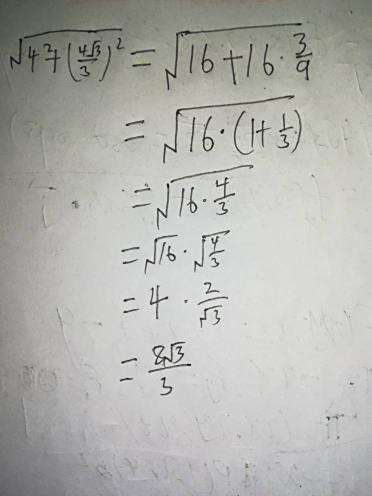 √(4²+(4√3/3)²) = √(16+16·3/9)
= √(16·(1+1/3))
= √(16·4/3)
= √16·√(4/3)
= 4·2/√3
= 8√3/3